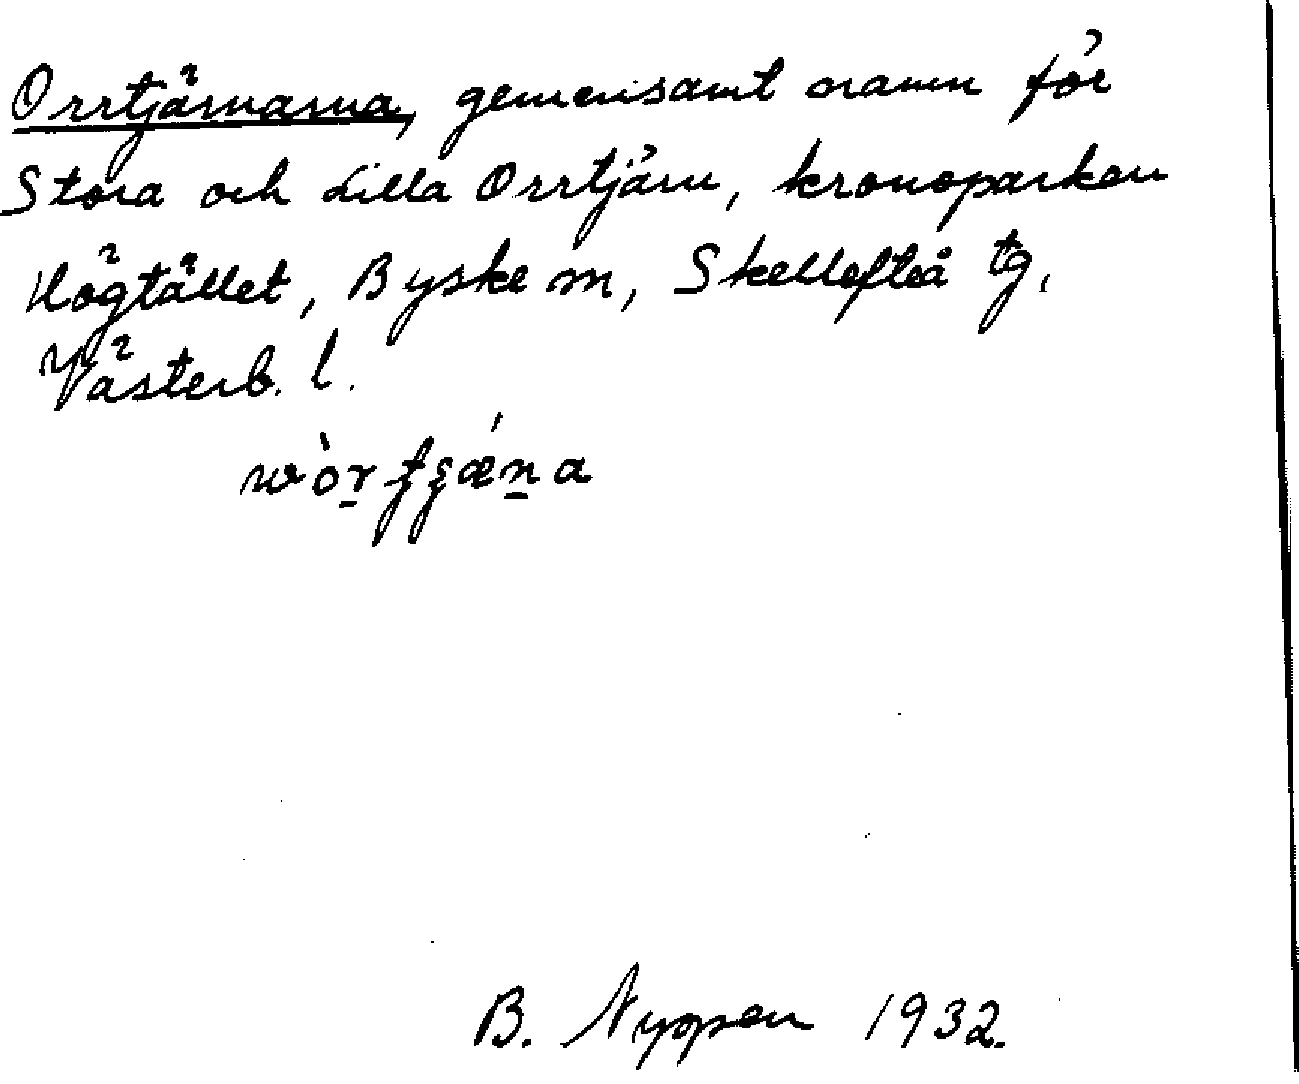 Orrtjärnarna, gemensamt namn för
Stora och Lilla Orrtjärn, kronoparken
Högtället, Byske sn, Skellefteå tg,
Västerb. l.
B. Nyppen 1932.